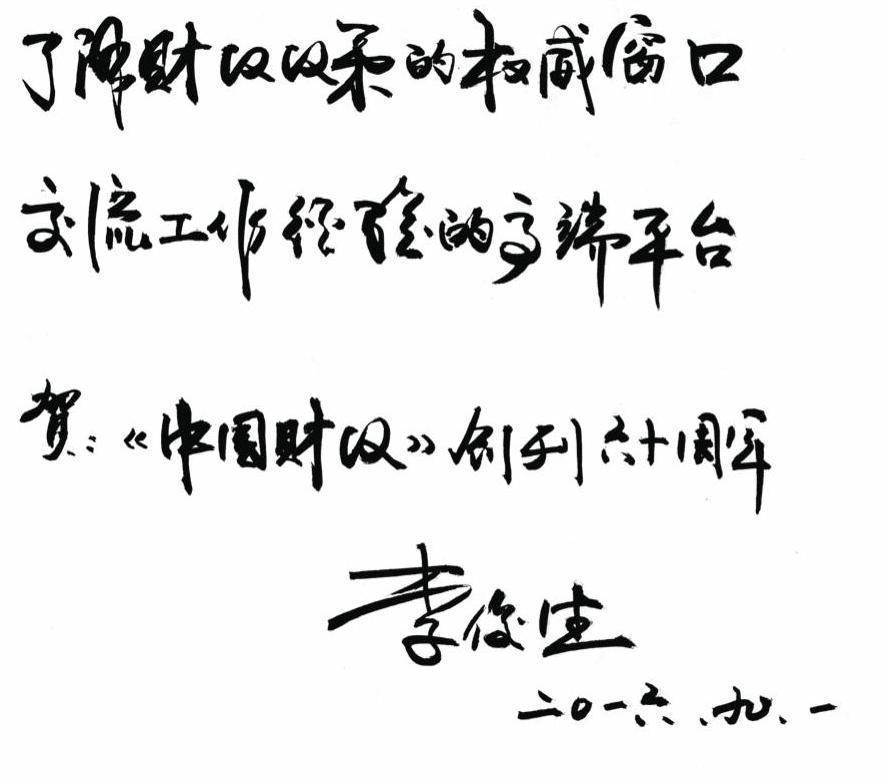 了解财政政策的权威窗口
交流工作经验的高端平台
贺:《中国财政》创刊六十周年
李俊生
二〇一六、九、一